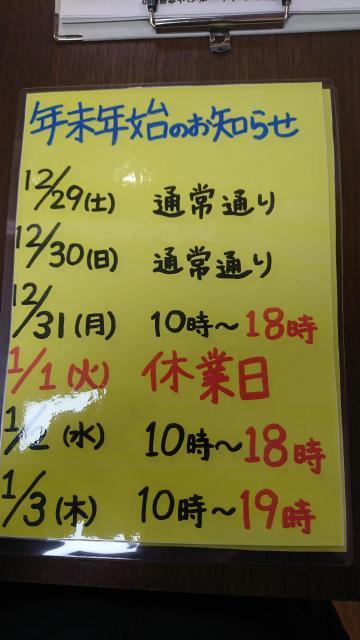 年末年始のお知らせ
12/29(土) 通常通り
12/30(日) 通常通り
12/31(月) 10時～18時
1/1(火) 休業日
1/2(水) 10時～18時
1/3(木) 10時～19時